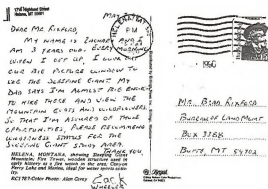 1718 Highland Street
Helena, MT 59601
MAY
DEAR MR. RIXFORD,
MY NAME IS ZACHARY. I
AM 3 YEARS OLD. EVERY MORNING
WHEN I GET UP, I LOOK OUT
OUR BIG PICTURE WINDOW TO
SEE THE SLEEPING GIANT. MY
DAD SAYS I'M ALMOST BIG ENOUGH
TO HIKE THERE AND VIEW THE
MOUNTAIN GOATS AND WILDFLOWERS.
SO THAT I'M ASSURED OF THOSE
OPPORTUNITIES, PLEASE RECOMMEND
WILDERNESS STATUS FOR THE
SLEEPING GIANT STUDY AREA.
THANK YOU
HELENA, MONTANA, showing Sleeping Giant
Mountain, Fire Tower, wooden structure used in
early history as a fire watch in the area. Canyon
Ferry Lake and Marina, ideal for water sports activity.
Color Photo: Alan Carey
ZACK
WHEELER
PM
MR. BRAD RIXFORD
BUREAU OF LAND MGMT
BOX 3388
BUTTE MT 59702